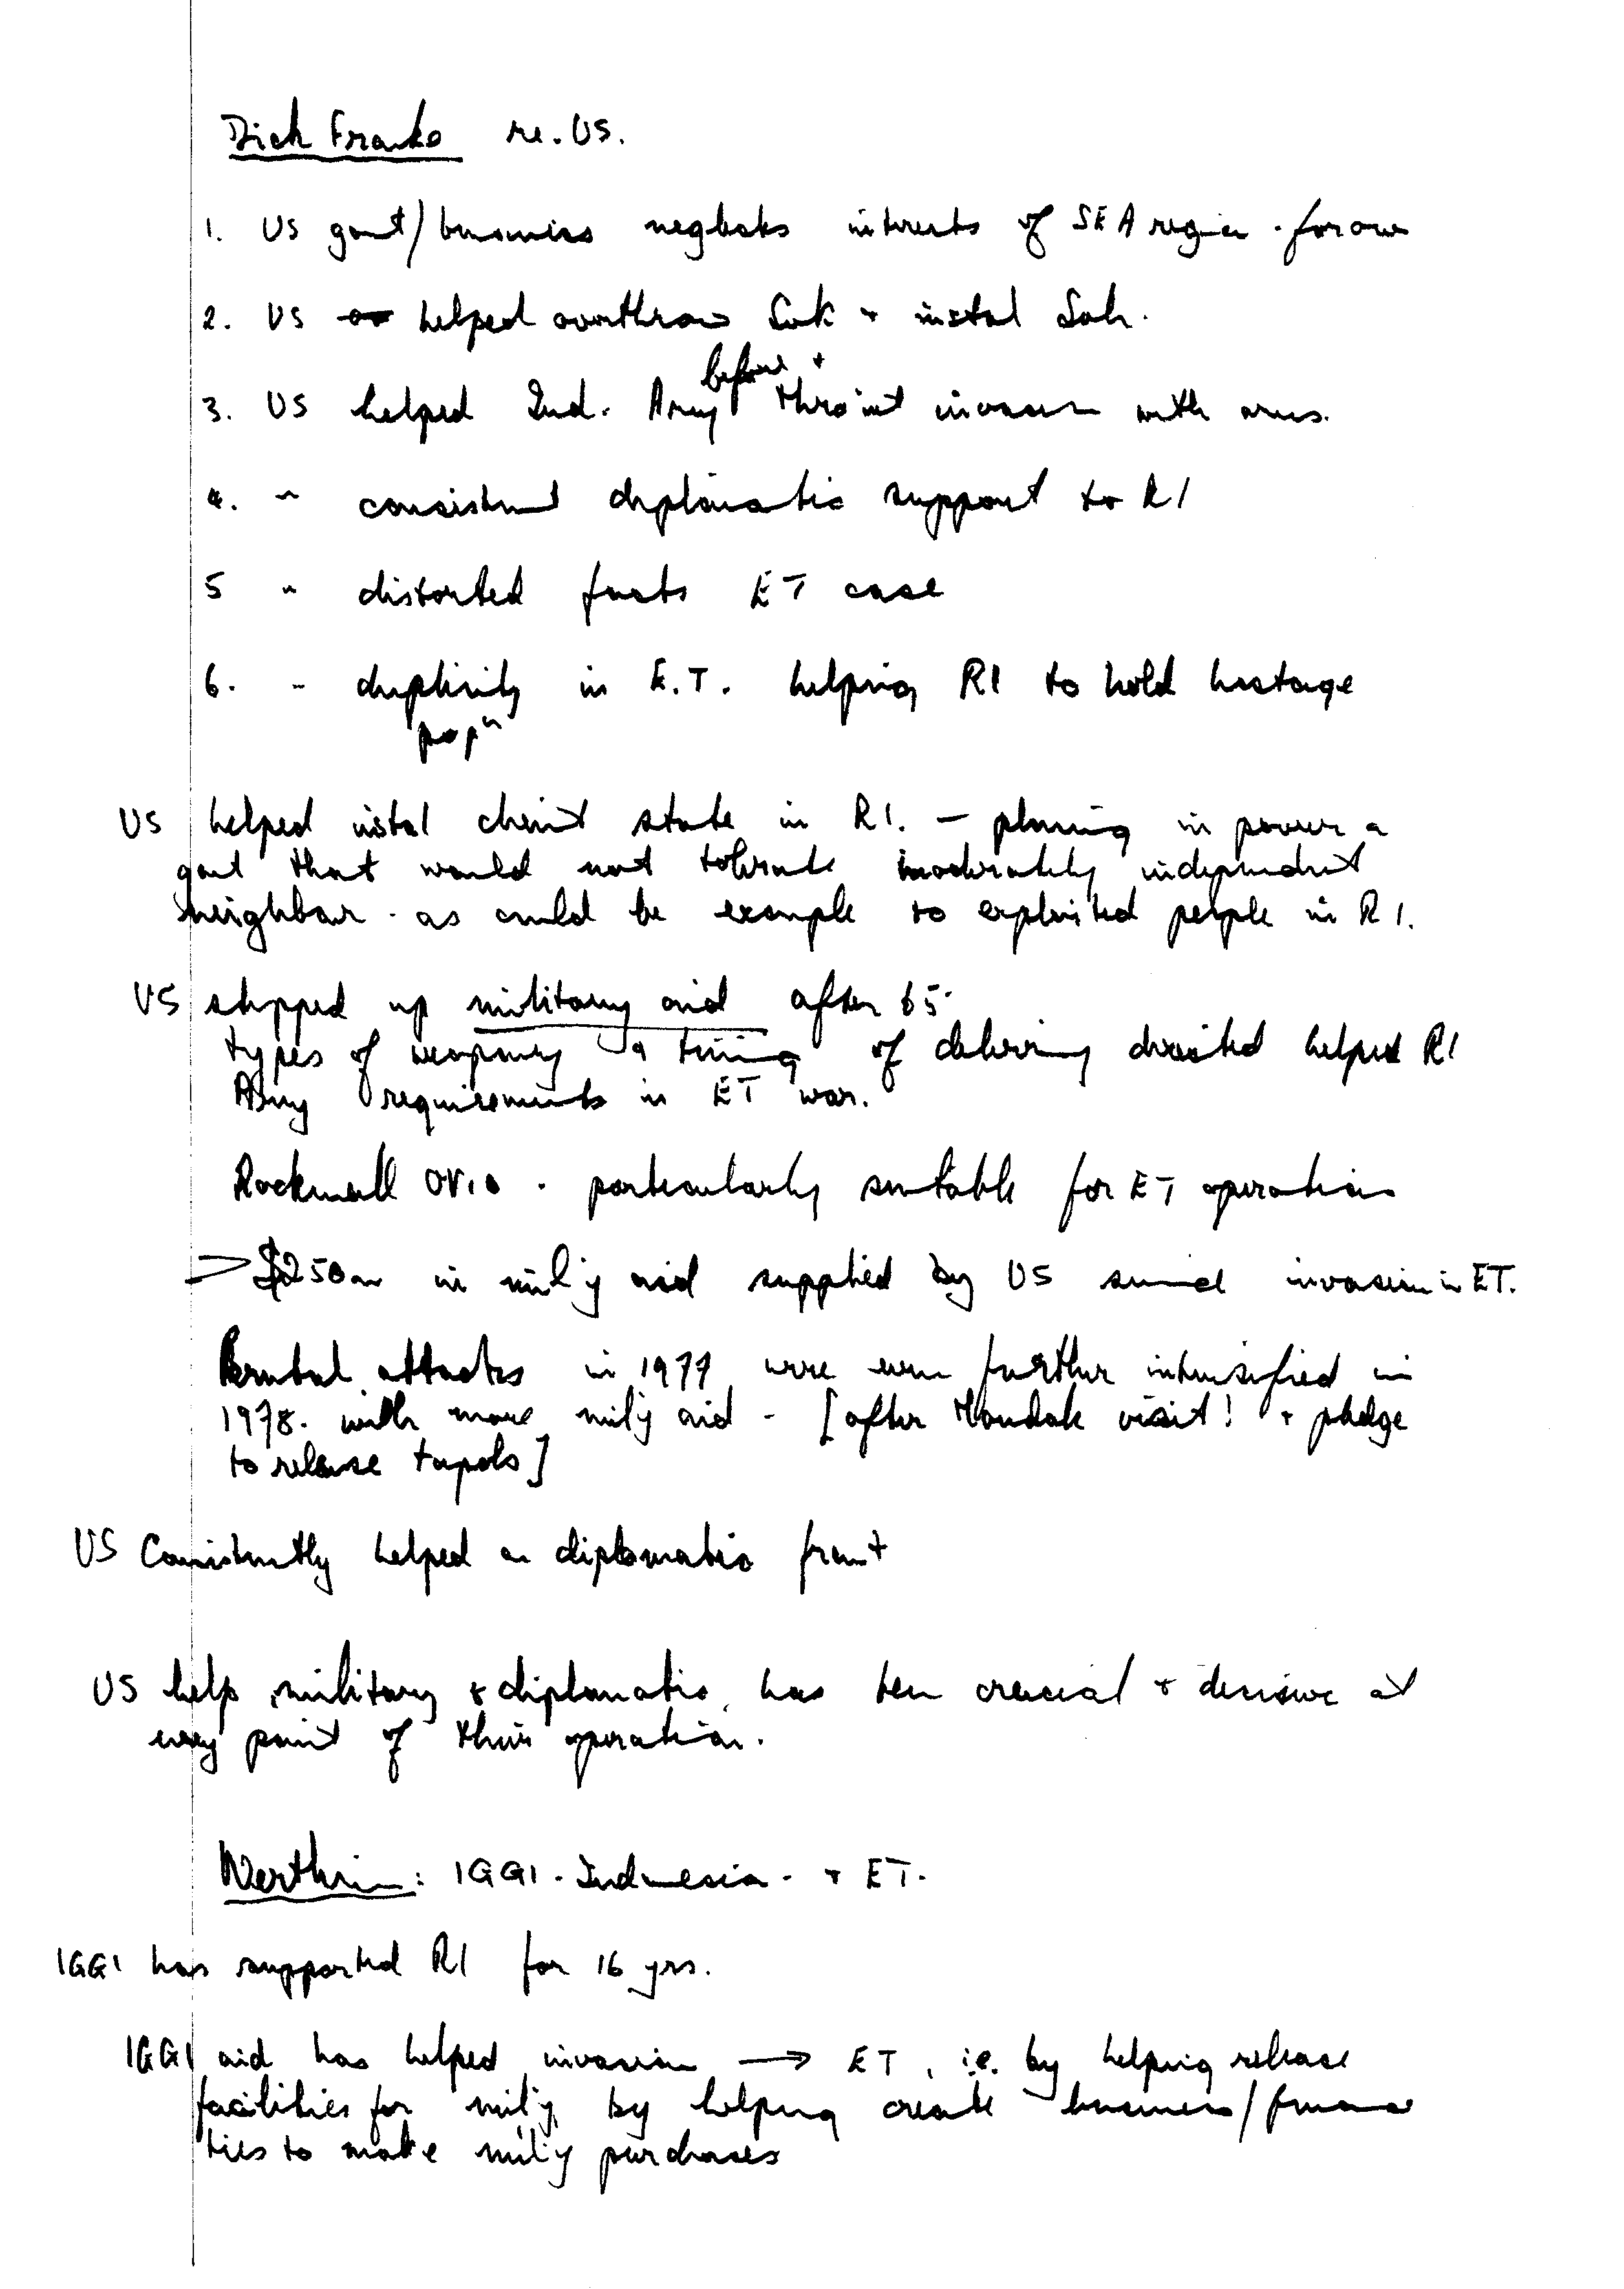 Dick Franke re. US.
1. US govt/business neglects interests of SEA region - for own
2. US helped overthrow Suk + instal Soh.
before +
3. US helped Ind. Army thro'out invasion with arms.
4. " consistent diplomatic support to RI
5 " distorted facts ET case
6. " duplicity in E.T. helping RI to hold hostage
popn
US helped instal client state in RI. - placing in power a
govt that would not tolerate moderately independent
neighbour - as could be example to exploited people in RI.
US stepped up military aid after 65.
types of weaponry + timing of delivery directed helped RI
Army requirements in ET war.
Rockwell OV.10 - particularly suitable for ET operations
→ $250m in mil'y aid supplied by US since invasion in ET.
Brutal attacks in 1977 were even further intensified in
1978. with more mil'y aid - [after Mondale visit! + pledge
to release tapols]
US Consistently helped on diplomatic front
US help, military + diplomatic, has been crucial + decisive at
every point of their operation.
Wertheim: IGGI - Indonesia - + ET.
IGGI has supported RI for 16 yrs.
IGGI aid has helped invasion → ET, i.e. by helping release
facilities for mil'y, by helping create business/finance
ties to make mil'y purchases